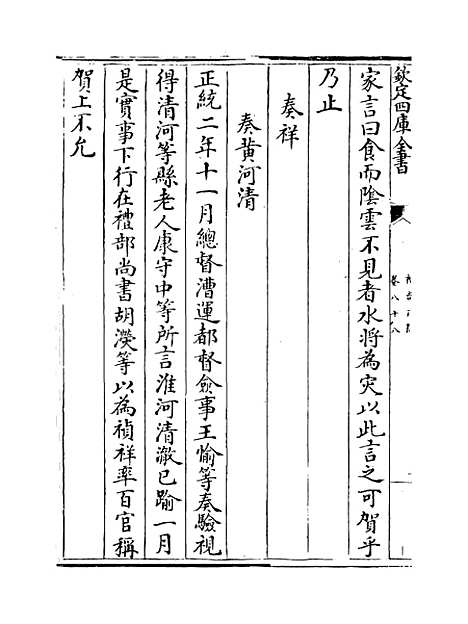 欽定四庫全書
卷八十八
家言曰食而陰雲不見者水將為灾以此言之可賀乎
乃止
奏祥
奏黄河清
正統二年十一月總督漕運都督僉事王愉等奏驗視
得清河等縣老人康守中等所言淮河清澈已踰一月
是實事下行在禮部尚書胡濙等以為禎祥率百官稱
賀上不允